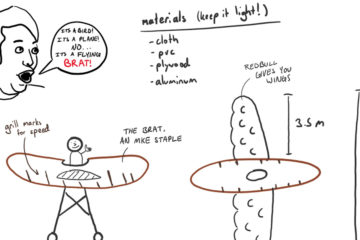 ITS A BIRD!
ITS A PLANE!
NO...
ITS A FLYING
BRAT!
materials (keep it light!)
- cloth
- pvc
- plywood
- aluminum
REDBULL
GIVES YOU
WINGS
3.5 m
grill marks
for speed
THE BRAT,
AN MKE STAPLE